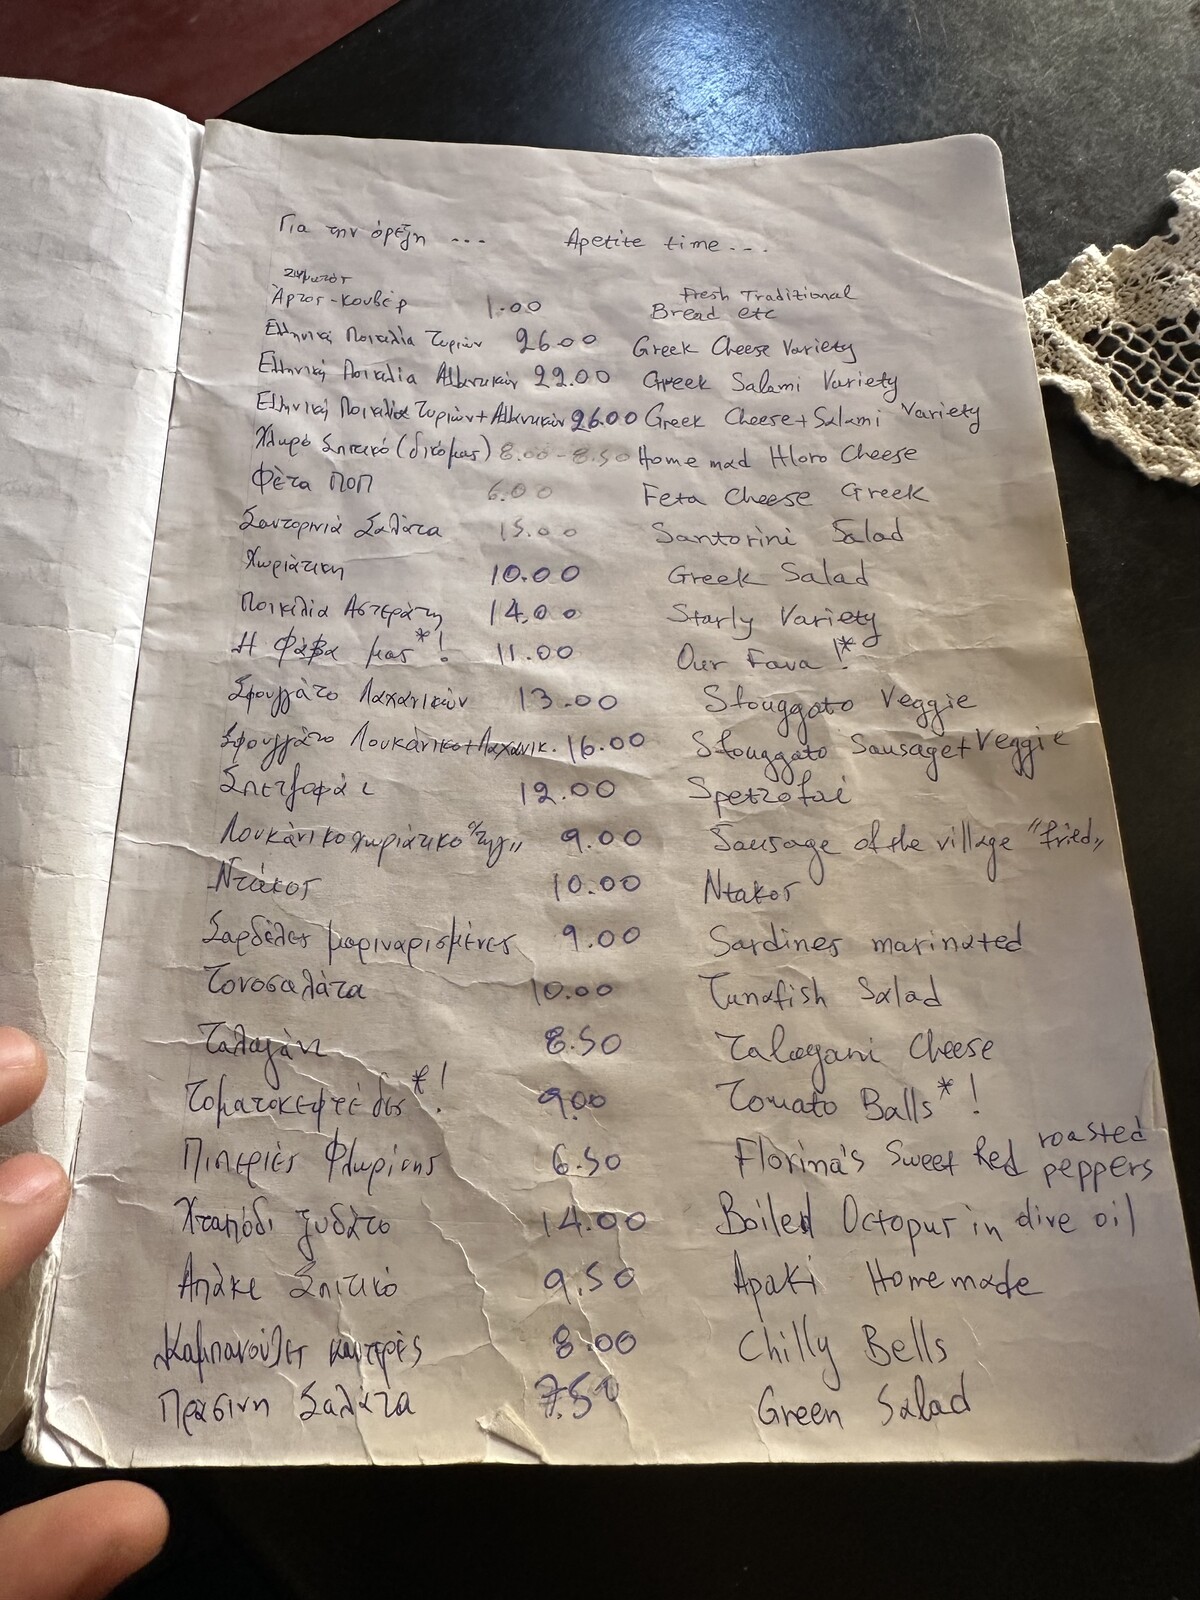 Για την όρεξη ... Apetite time...
ζυμωτός
Άρτος-κουβέρ 1.00 Fresh Traditional
Bread etc
Ελληνική Ποικιλία Τυριών 26.00 Greek Cheese Variety
Ελληνική Ποικιλία Αλλαντικών 22.00 Greek Salami Variety
Ελληνική Ποικιλία Τυριών+Αλλαντικών 26.00 Greek Cheese+Salami Variety
Χλωρό Σπιτικό (δικό μας) 8.00-8.50 Home mad Hloro Cheese
Φέτα ΠΟΠ 6.00 Feta Cheese Greek
Σαντορινιά Σαλάτα 15.00 Santorini Salad
Χωριάτικη 10.00 Greek Salad
Ποικιλία Αστεράτη 14.00 Starly Variety
Η Φάβα μας*! 11.00 Our Fava!*
Σφουγγάτο Λαχανικών 13.00 Sfouggato Veggie
Σφουγγάτο Λουκάνικο+Λαχανικ. 16.00 Sfouggato Sausage+Veggie
Σπετζοφάι 12.00 Spetzofai
Λουκάνικο χωριάτικο "τηγ,, 9.00 Sausage of the village "fried,,
Ντάκος 10.00 Ντακος
Σαρδέλες μαριναρισμένες 9.00 Sardines marinated
Τονοσαλάτα 10.00 Tunafish Salad
Ταλαγάνι 8.50 Talagani Cheese
Τοματοκεφτέδες*! 9.00 Tomato Balls*!
Πιπεριές Φλωρίνης 6.50 Florina's Sweet Red roasted
peppers
Χταπόδι ξυδάτο 14.00 Boiled Octopus in olive oil
Απάκι Σπιτικό 9.50 Apaki Homemade
Καμπανούλες καυτερές 8.00 Chilly Bells
Πράσινη Σαλάτα 7.50 Green Salad